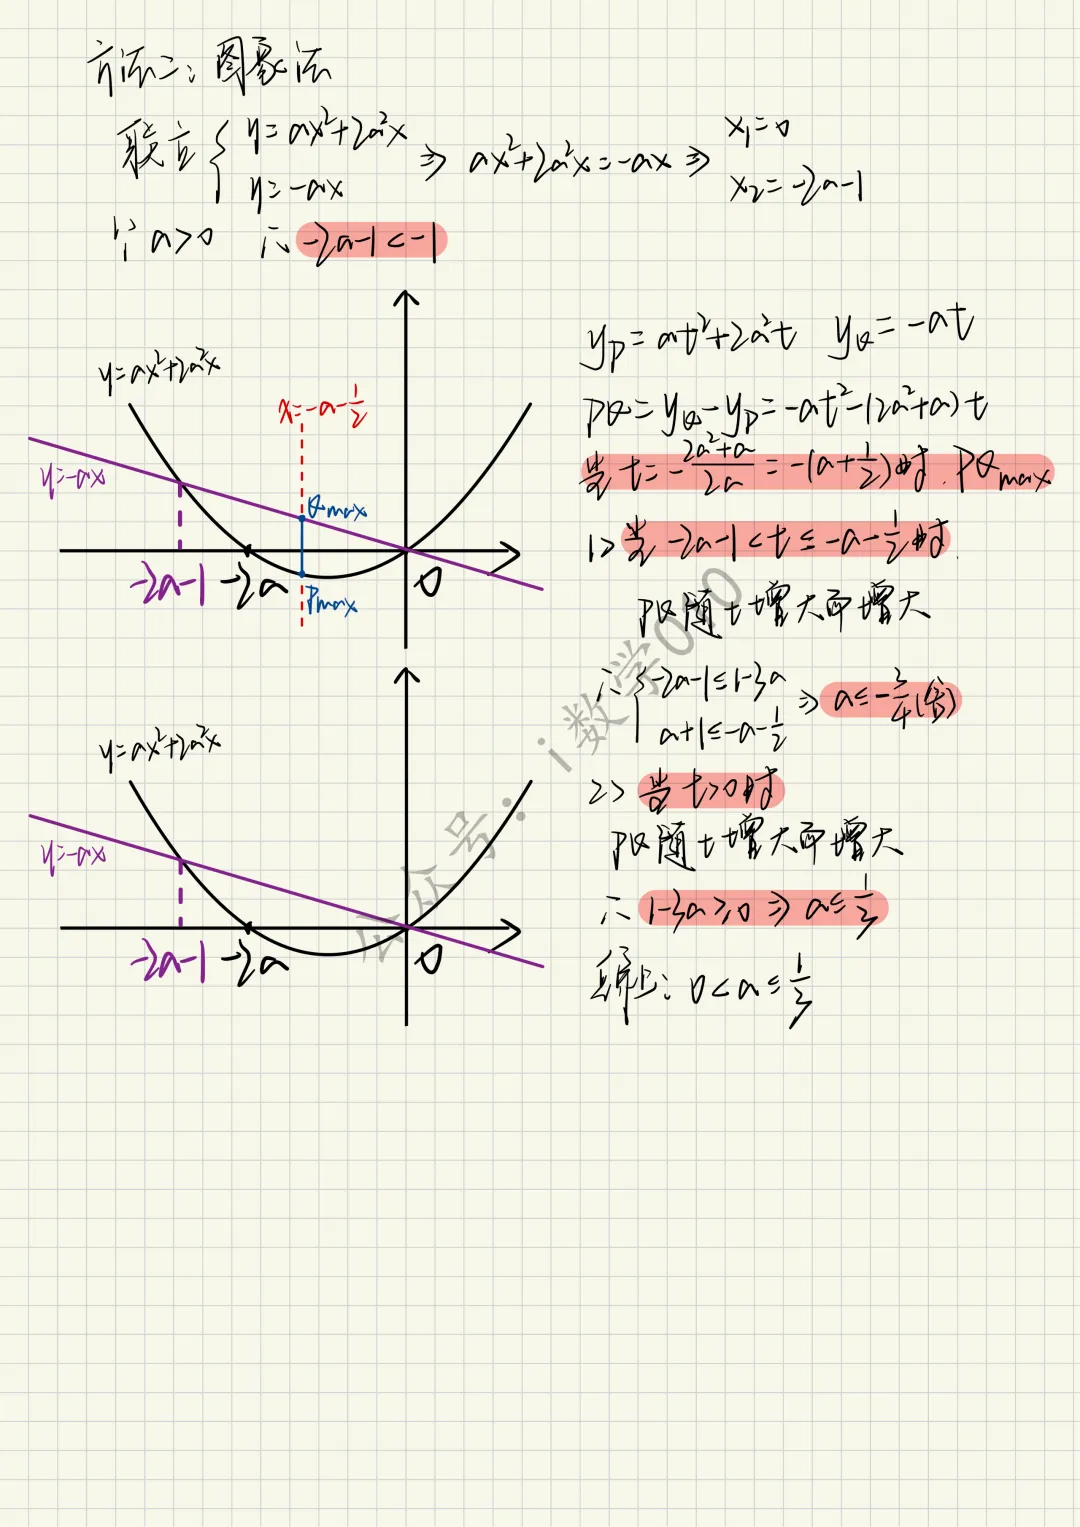 方法二：图象法
联立{y=ax²+2a²x
y=-ax
⇒ ax²+2a²x=-ax ⇒ x₁=0
x₂=-2a-1
∵a>0 ∴-2a-1<-1
y=ax²+2a²x
x=-a-1/2
y=-ax
Qmax
-2a-1 -2a 0
Pmax
y_P=at²+2a²t y_Q=-at
PQ=y_Q-y_P=-at²-(2a²+a)t
当t=-(2a²+a)/2a=-(a+1/2)时.PQmax
1>当-2a-1<t≤-a-1/2时.
PQ随t增大而增大
∴{-2a-1≤1-3a
a+1≤-a-1/2
⇒a≤-3/4(舍)
2>当t>0时
PQ随t增大而增大
∴1-3a≥0⇒a≤1/3
综上：0<a≤1/3
y=ax²+2a²x
y=-ax
-2a-1 -2a 0
公众号：i数学040